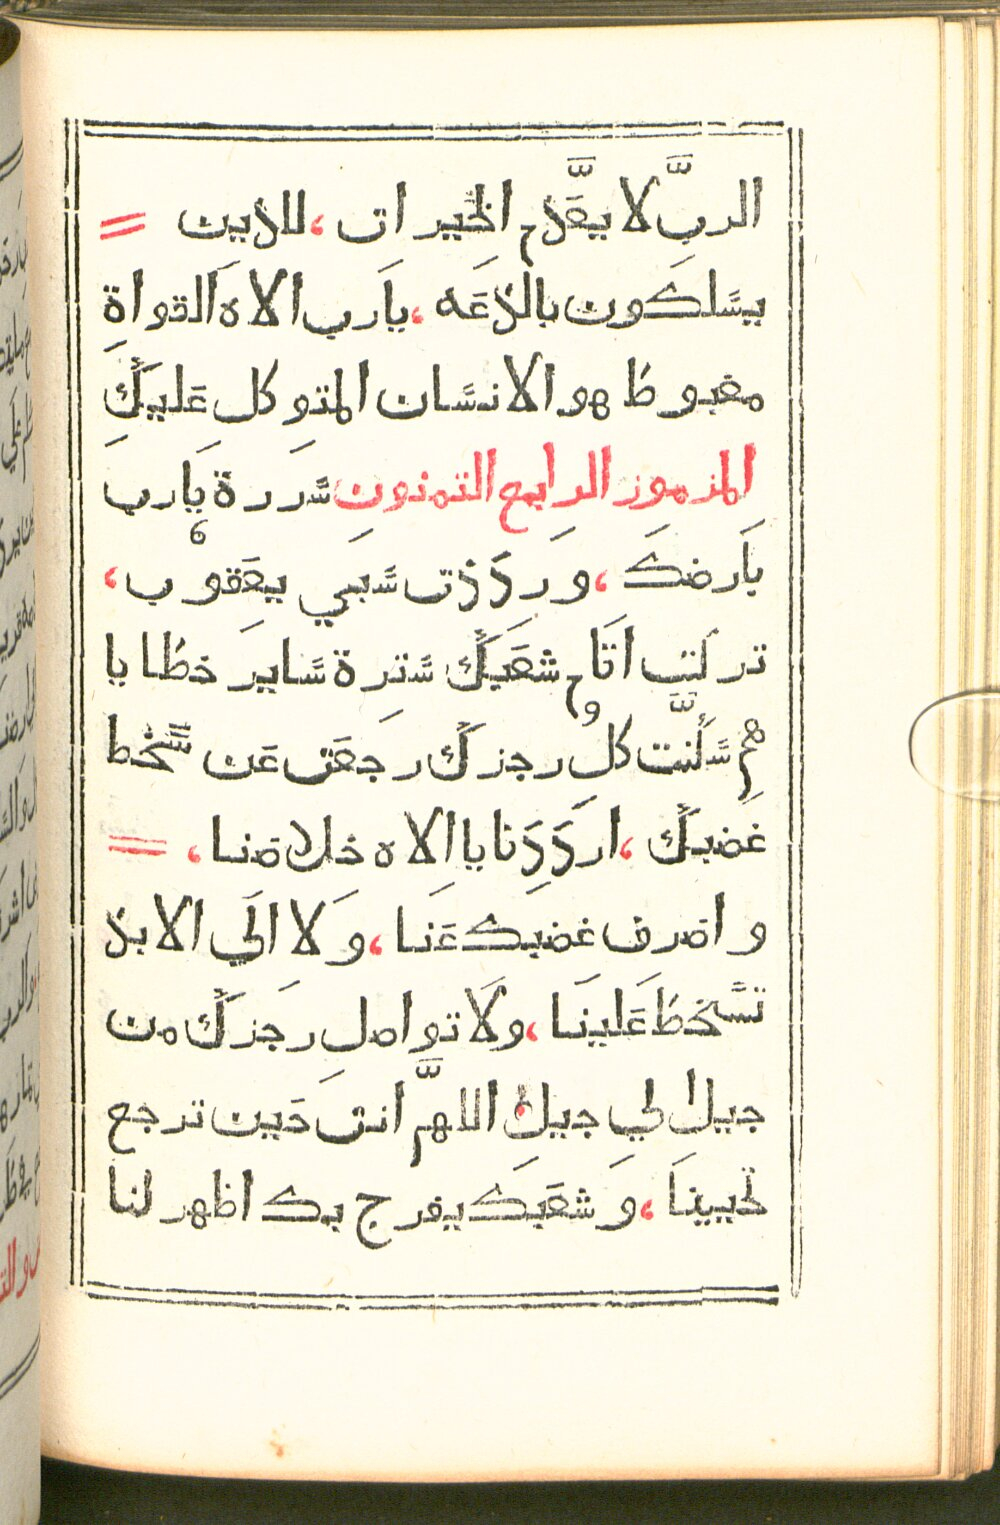 الربَّ لا يعَّدم الخيرات، للذين =
يسلكون بالدَعَه، يارب الاه القواة
مغبوط هو الانسان المتوكل عليكَ
المزموز الرابع التمنون سررة يارب
بارضكَ، ورددت سبي يعقوب،
تركت اتام شعبكَ سترة ساير خطايا
هم وسكَّنت كل رجزكَ رجعت عَن سخط
غضبكَ، ارددنا يا الاه خلاصنا، =
واصرف غضبك عَنا، ولا الي الابد
تسخط عَلينا، ولا تواصل رجزكَ من
جيل الي جيل، اللهمَّ انت حَين ترجع
تحيينا، وشعَبك يفرح بك اظهر لنا